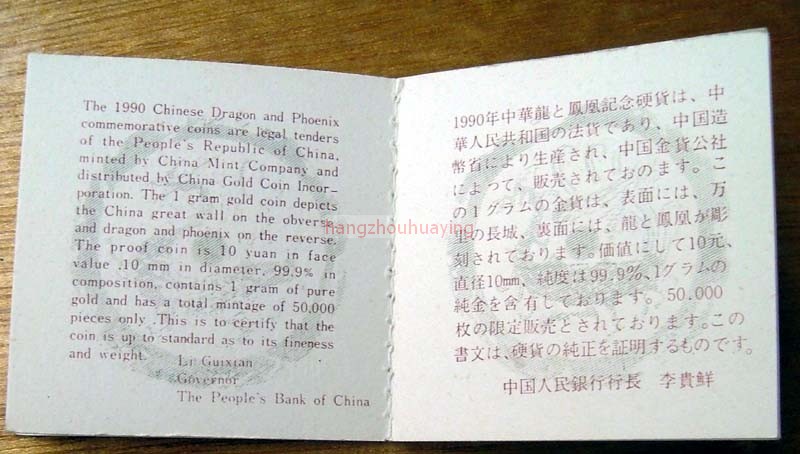 The 1990 Chinese Dragon and Phoenix
commemorative coins are legal tenders
of the People's Republic of China,
minted by China Mint Company and
distributed by China Gold Coin Incor-
poration. The 1 gram gold coin depicts
the China great wall on the obverse
and dragon and phoenix on the reverse.
The proof coin is 10 yuan in face
value .10 mm in diameter, 99.9% in
composition, contains 1 gram of pure
gold and has a total mintage of 50,000
pieces only .This is to certify that the
coin is up to standard as to its fineness
and weight.
Li Guixian
Governor
The People's Bank of China
1990年中華龍と鳳凰記念硬貨は、中
華人民共和国の法貨であり、中国造
幣省により生産され、中国金貨公社
によって、販売されておのます。こ
の1グラムの金貨は、表面には、万
里の長城、裏面には、龍と鳳凰が彫
刻されております。価値にして10元、
直径10mm、純度は99.9%、1グラムの
純金を含有しております。50.000
枚の限定販売とされております。この
書文は、硬貨の純正を証明するものです。
中国人民銀行行長 李貴鮮
hangzhouhuaying